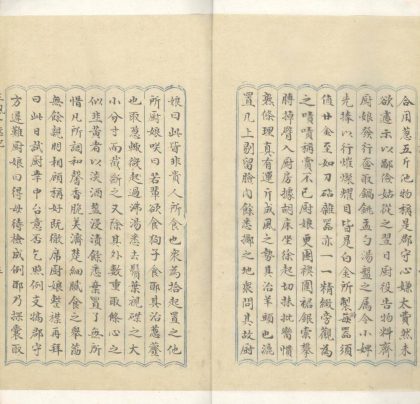 合用蔥五斤他物稱是郡守心嫌太費然未
欲遽示以鄙儉姑從之翌日厨役告物料齊
厨娘發行奩取鍋銚盂勺湯盤之属令小婢
先捧以行燦爛耀目皆是白金所製每器須
值廿金至如刀砧雜器亦一一精緻旁觀為
之嘖嘖稱賞不已厨娘更圍襖圍裙銀索攀
膊掉臂入厨房據胡床坐徐起切抹批臠慣
熟條理真有運斤成風之勢其治羊頭也漉
置几上剔留臉肉餘悉擲之地衆問其故厨
娘曰此皆非貴人所食也衆為拾起置之他
所厨娘笑曰若輩欲食狗子食耶其治蔥虀
也取蔥輒微過沸湯悉去鬚葉視碟之大
小分寸而截斷之又除其外數重取條心之
似韭黃者以淡酒鹽浸漬餘悉棄置了無所
惜凡所調和馨香脆美濟楚細膩食之舉箸
無餘親朋相顧稱好既徹席厨娘整襟再拜
曰此日試厨幸中台意否乞照例支犒郡守
方遲難厨娘曰得毋待檢成例耶乃探囊取